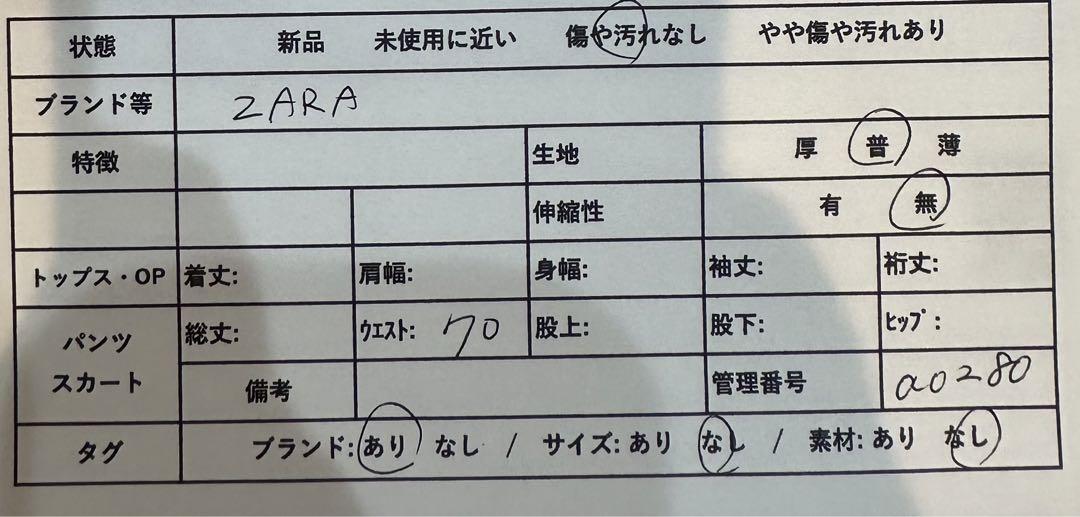 状態 新品 未使用に近い 傷や汚れなし やや傷や汚れあり
ブランド等 ZARA
特徴 生地 厚 普 薄
伸縮性 有 無
トップス・OP 着丈: 肩幅: 身幅: 袖丈: 裄丈:
パンツ スカート 総丈: ウエスト: 70 股上: 股下: ヒップ:
備考 管理番号 a0280
タグ ブランド: あり なし / サイズ: あり なし / 素材: あり なし